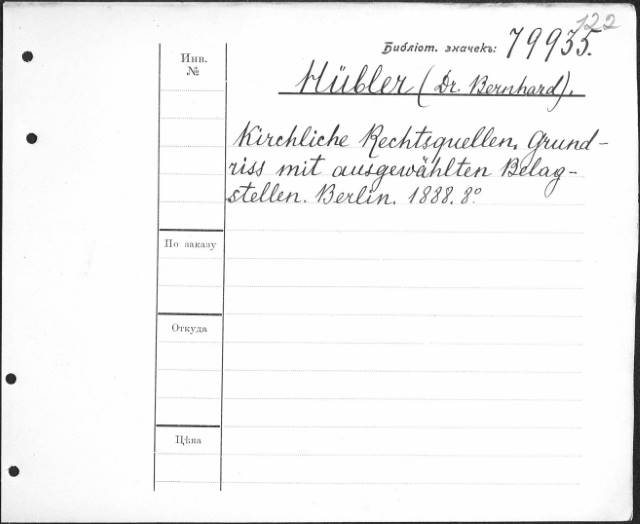 122
Библіот. значекъ: 79935.
Инв.
№
Hübler (Dr. Bernhard).
Kirchliche Rechtsquellen. Grund-
riss mit ausgewählten Belag-
stellen. Berlin. 1888. 8º
По заказу
Откуда
Цѣна